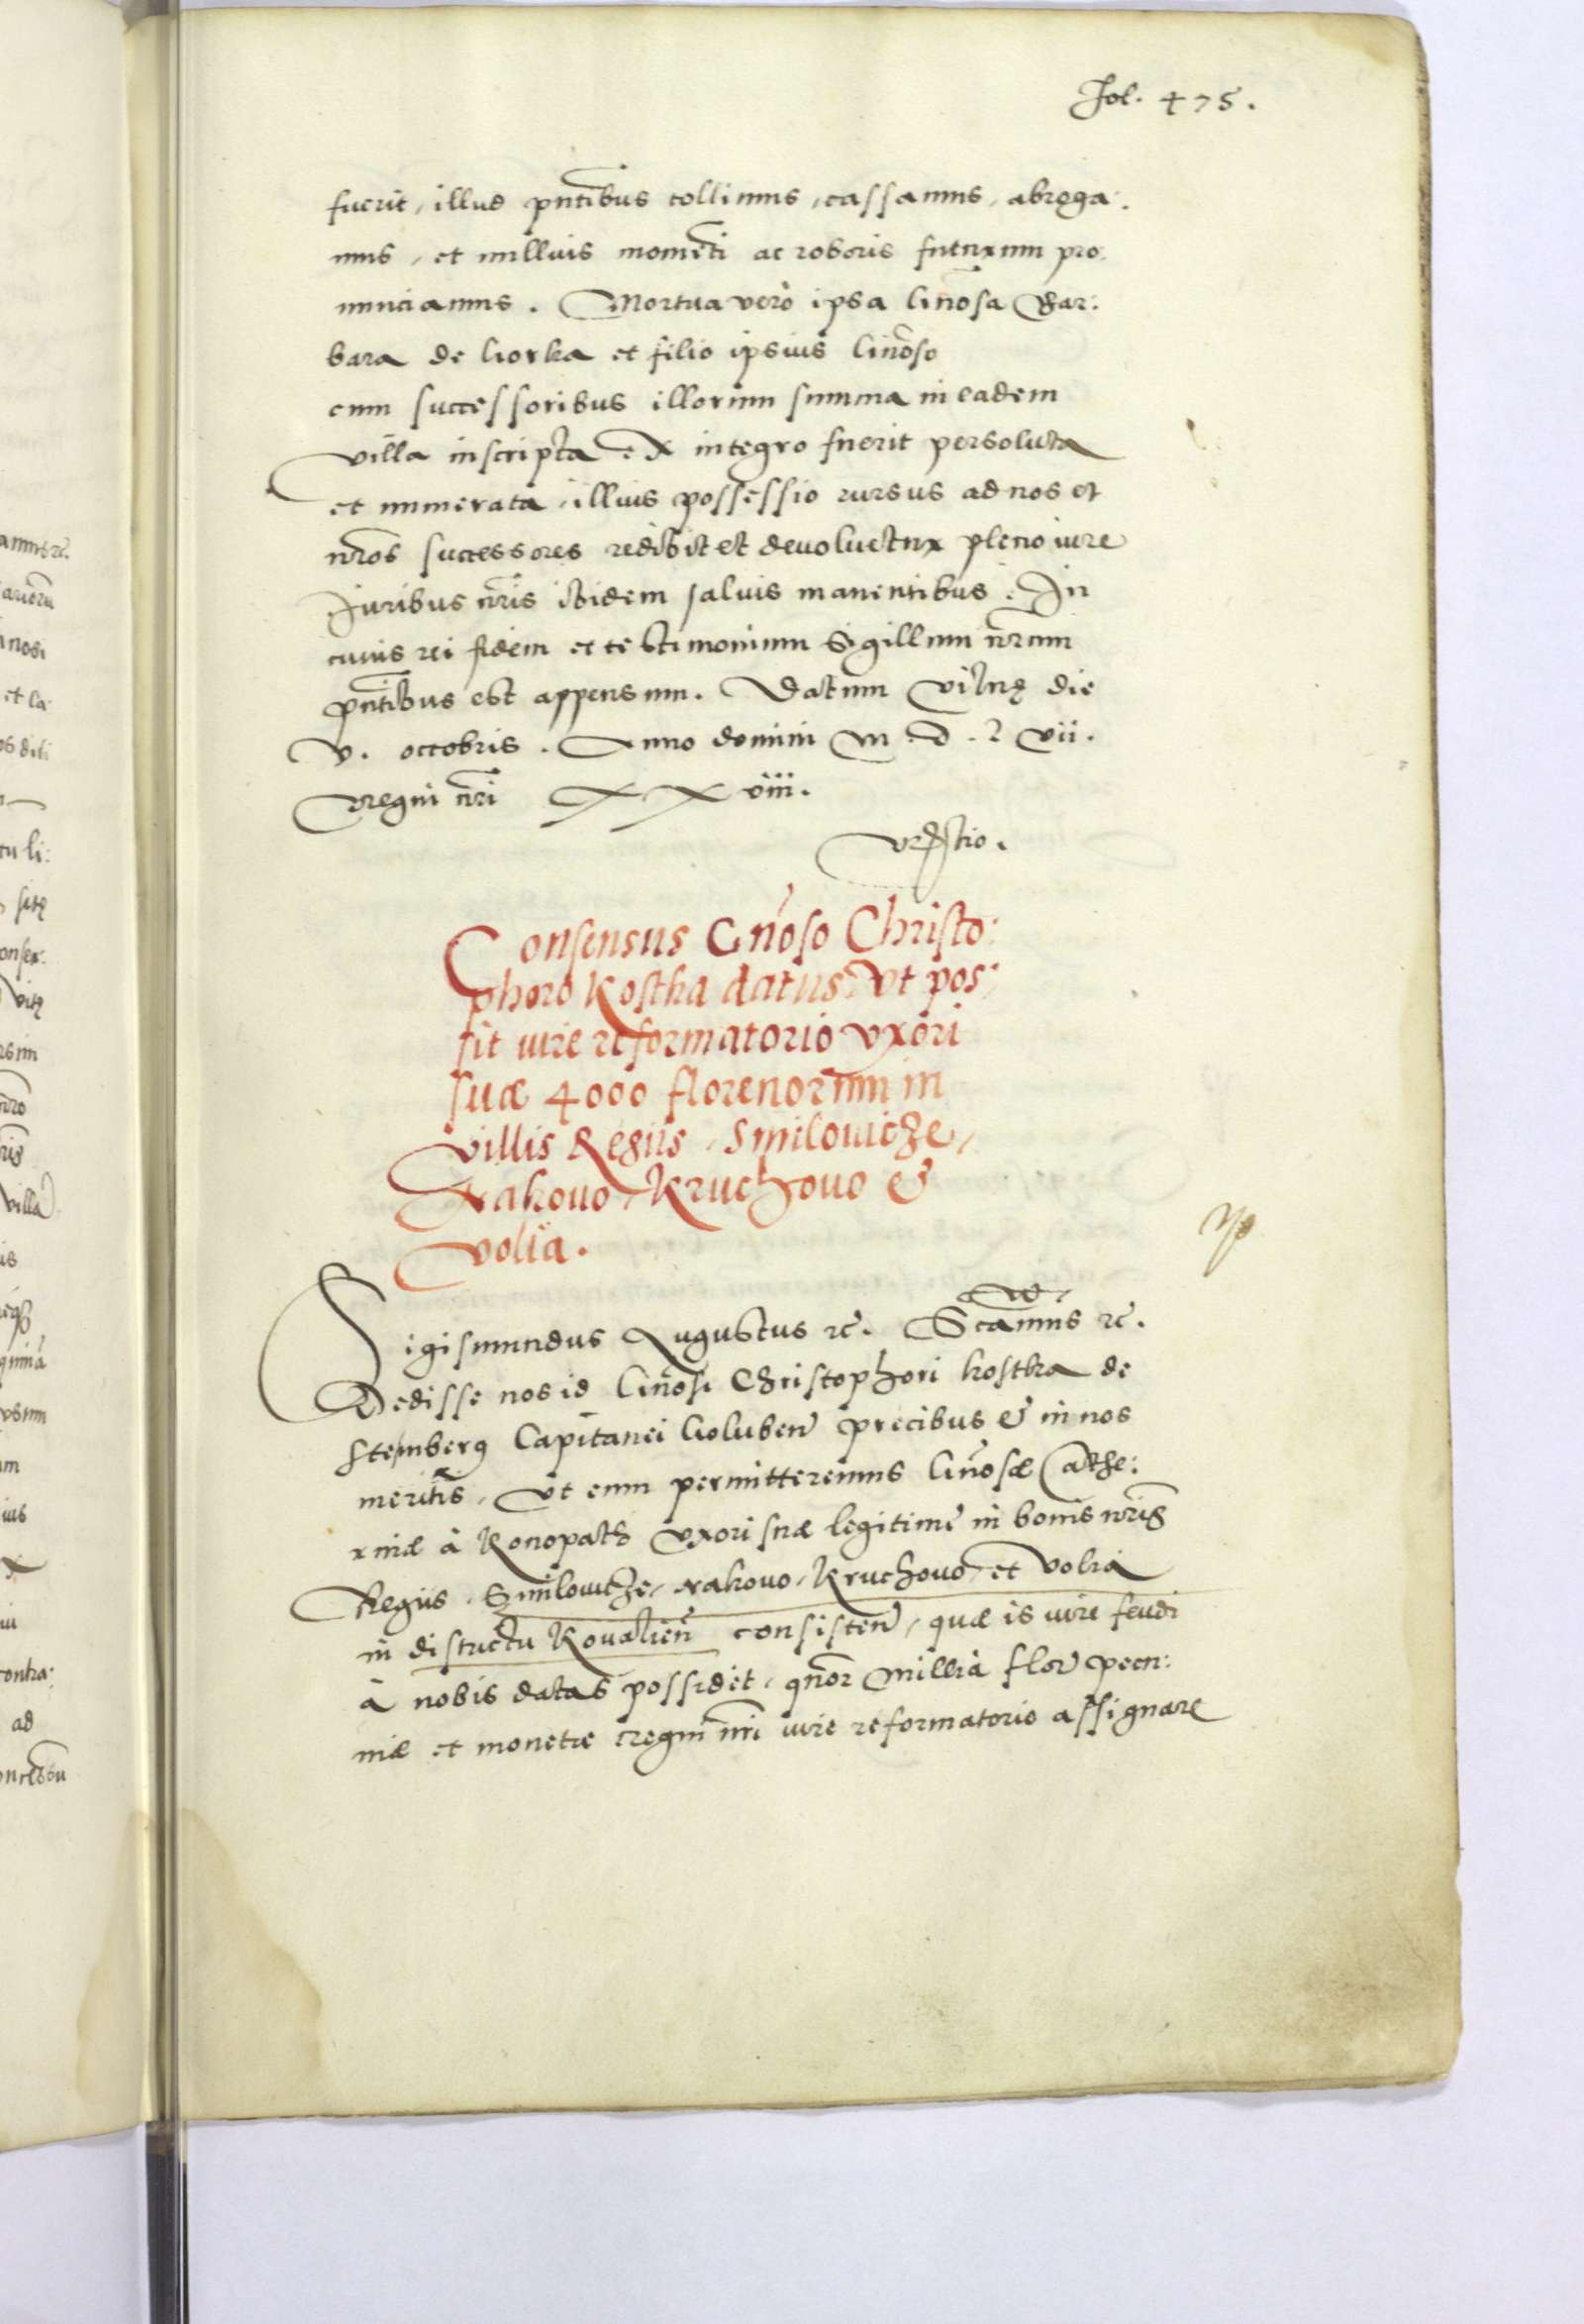 Fol. 475.
fuerit, illud pntibus tollimus, cassamus, abroga:
mus, et nullius momēti ac roboris futurum pro:
nunciamus. Mortua vero ipsa Gnosa Bar:
bara de Gorka et filio ipsius Gnoso
cum successoribus illorum summa in eadem
villa inscripta ex integro fuerit persoluta
et numerata, illius possessio rursus ad nos et
nros successores redibit et devoluetur pleno iure
Juribus nris ibidem salvis manentibus. In
cuius rei fidem et testimonium Sigillum nrum
pntibus est appensum. Datum Vilnę die
V. octobris. Anno domini M. D. L vii.
Regni nri XXviii.
Consensus Gnoso Christo:
phoro Kostka datus, Vt pos:
sit iure reformatorio Vxori
suæ 4000 florenorum in
villis Regiis, Smilouicze,
Rakouo, Kruchouo &
Volia.
Sigismundus Augustus rc. Scamus rc.
Dedisse nos id Gnosi Christophori Kostka de
Stemberg Capitanei Goluben precibus & in nos
meritis, Vt eum permitteremus Gnosæ Cathe:
rinæ à Konopath Vxori suæ legitime in bonis nris
Regiis, Smilouicze, Rakouo, Kruchouo, et Volia
in districtu Kovalien consisten, quæ is iure feudi
à nobis datas possidet, qnor millia flor pecu:
niæ et monetæ regni nri iure reformatorio assignare